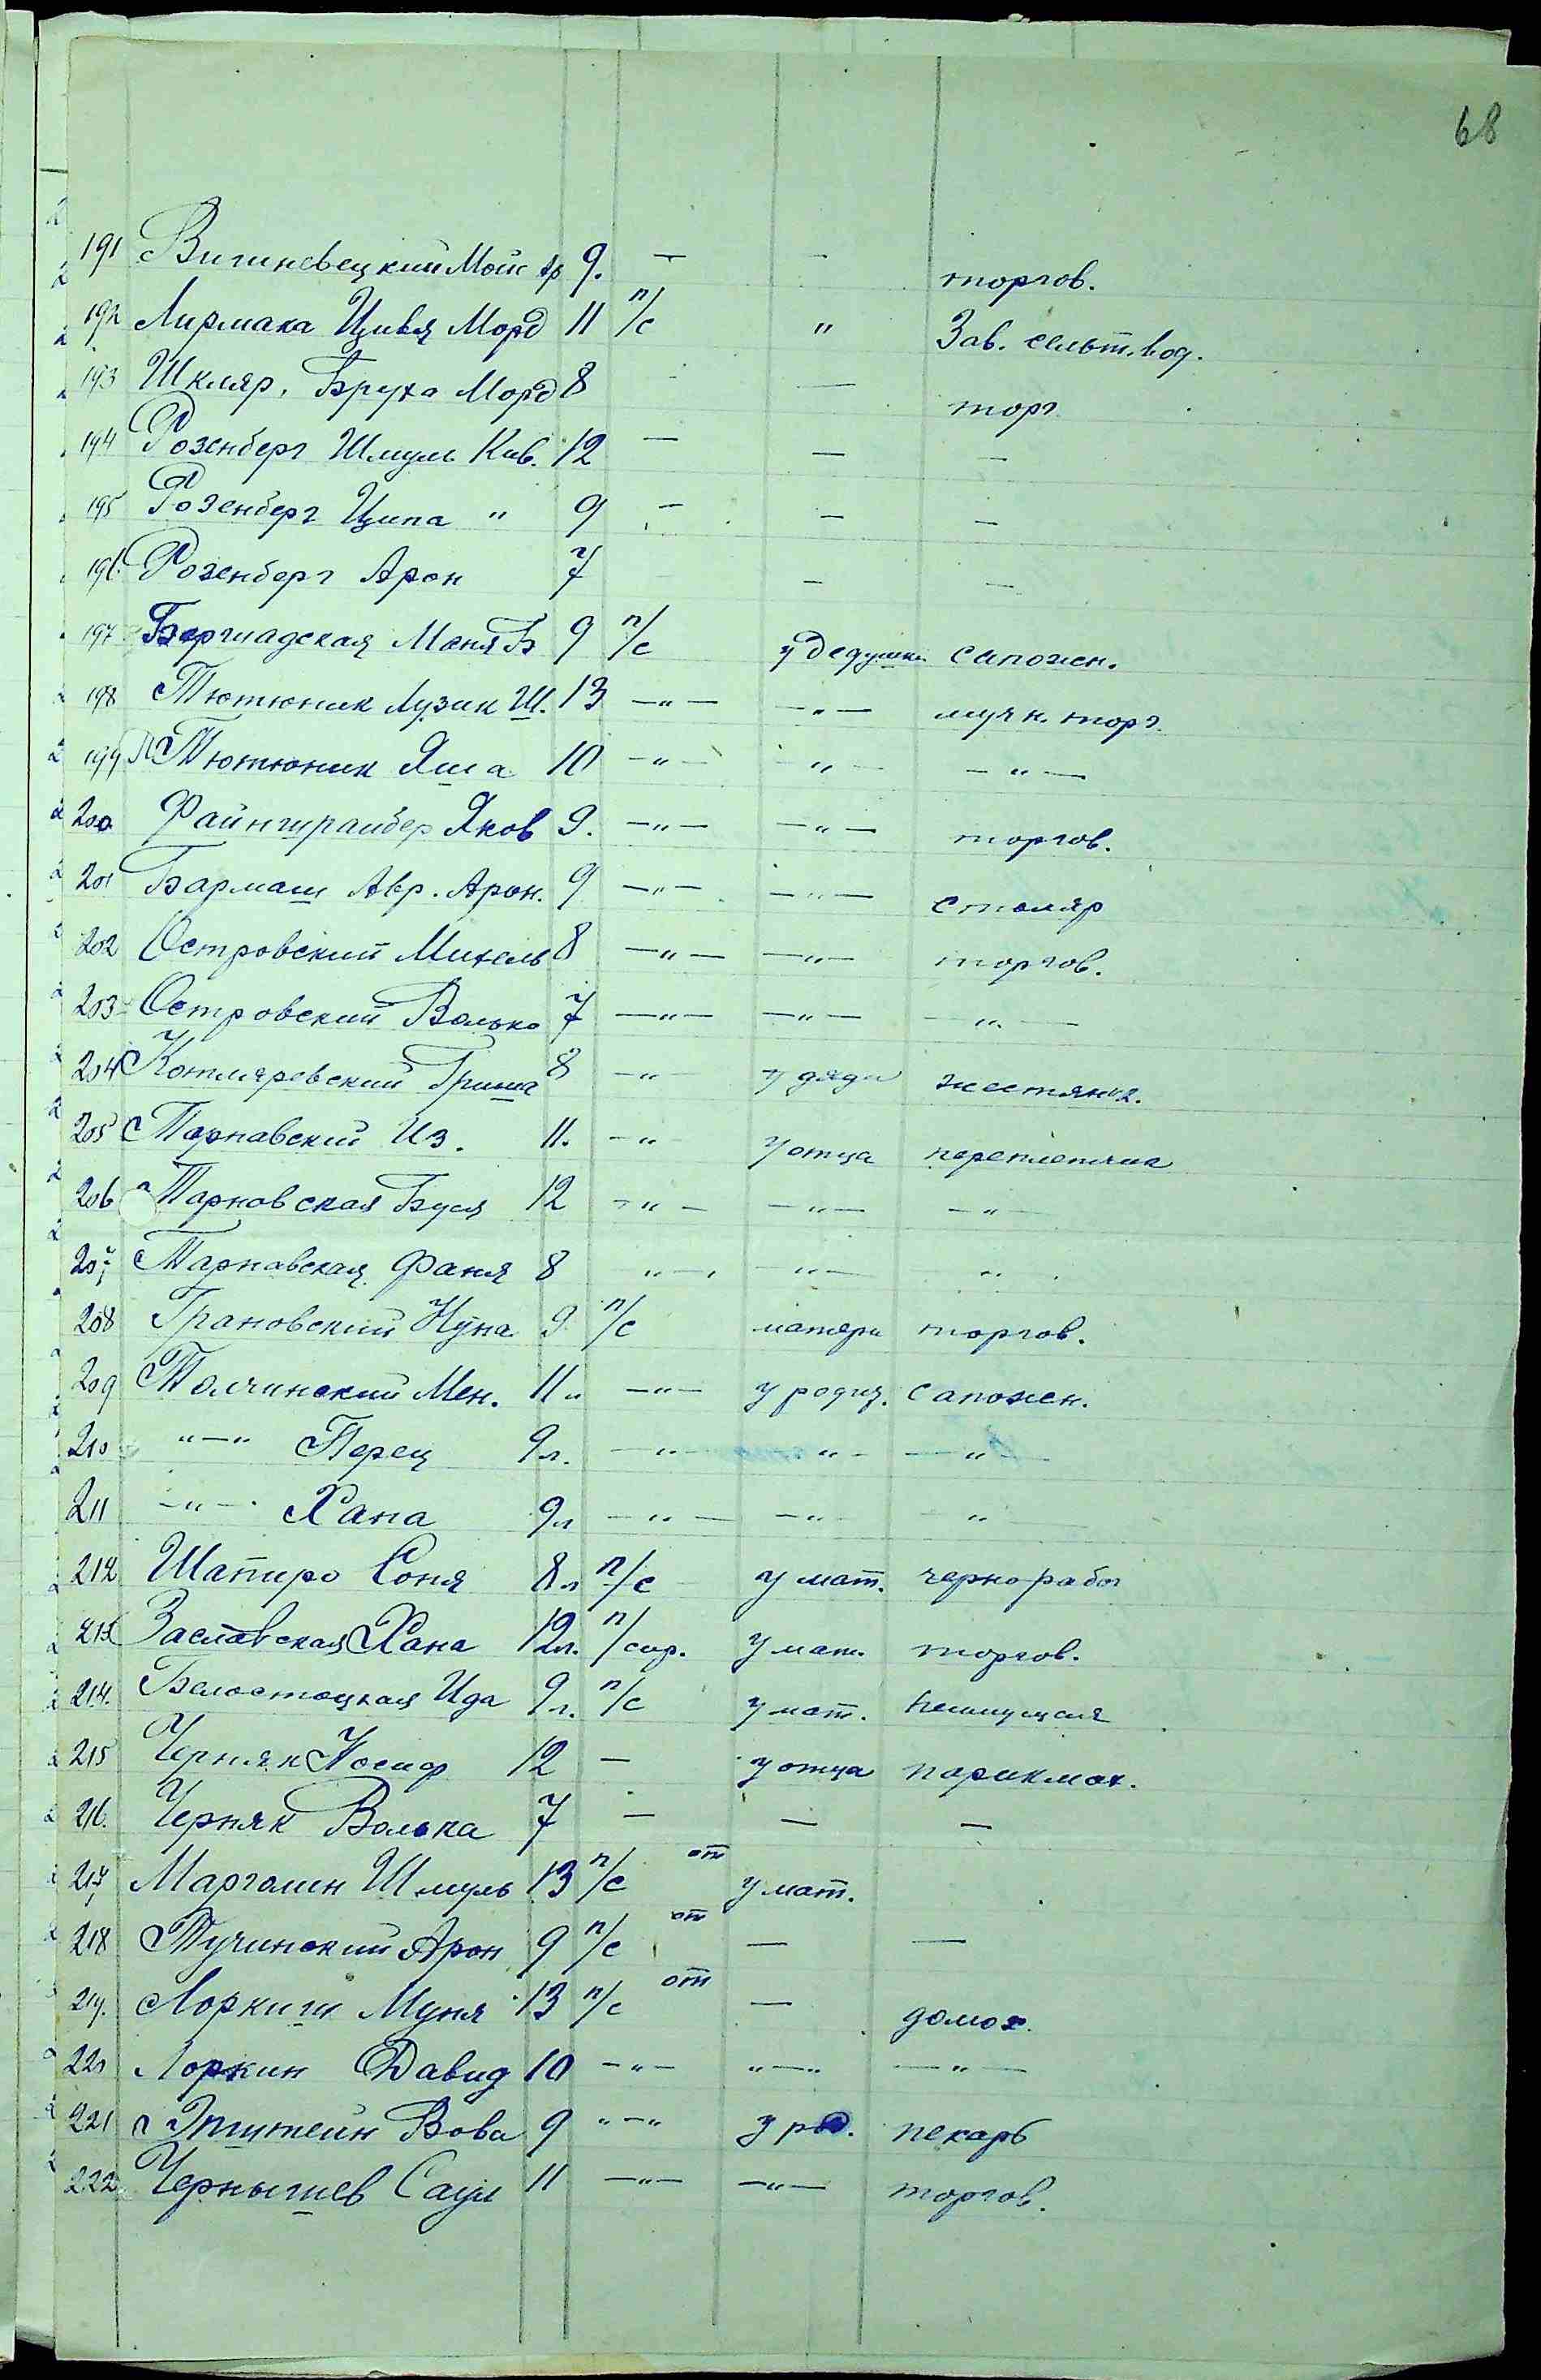 68
191 Вигиневецкий Мойс Ар 9. — - торгов.
192 Лирмака Цивя Морд 11 п/с " Зав. сельт. вод.
193 Шкляр, Бруха Морд 8 - — торг.
194 Розенберг Шмуль Кив. 12 — — —
195 Розенберг Ципа " 9 — — —
196. Розенберг Арон 7 — —
197 Бершадская Маня Б 9 п/с у дедушки сапожн.
198 Тютюник Лузик Ш. 13 —"— —"— мучн. торг.
199 Тютюник Яша 10 —"— "— —"—
200 Файнграйбер Яков 9. —"— —"— торгов.
201 Бармаш Авр. Арон. 9 —"— —"— столяр
202 Островский Михель 8 —"— —"— торгов.
203 Островский Волько 7 —"— —"— —"—
204 Котляревский Гриша 8 —"— у дяди жестянк.
205 Тарнавский Из. 11. —" у отца переплетчик
206 Тарновская Буся 12 —"— —"— —"—
207 Тарнавская Фаня 8 "— —"— "
208 Грановский Нуна 9 п/с матери торгов.
209 Толчинский Мен. 11 л —"— у родит. сапожн.
210 "—" Перец 9 л. —"— "— —"—
211 —"— Хана 9 л —"— —"— "
212 Шапиро Соня 8 л п/с у мат. чернорабоч
213 Заславская Хана 12 л. п/сир. у мат. торгов.
214. Белостоцкая Ида 9 л. п/с у мат. неимущая
215 Черняк Иосиф 12 — у отца парикмах.
216. Черняк Волька 7 — — —
217 Марголин Шмуль 13 п/с от у мат.
218 Тучинский Арон 9 п/с от — —
219. Лоркиш Муня 13 п/с от — домох.
220 Лоркин Давид 10 —"— "—" —"—
221 Эпштейн Вова 9 "—" у род. пекарь
222 Чернышев Саул 11 —"— —"— торгов.